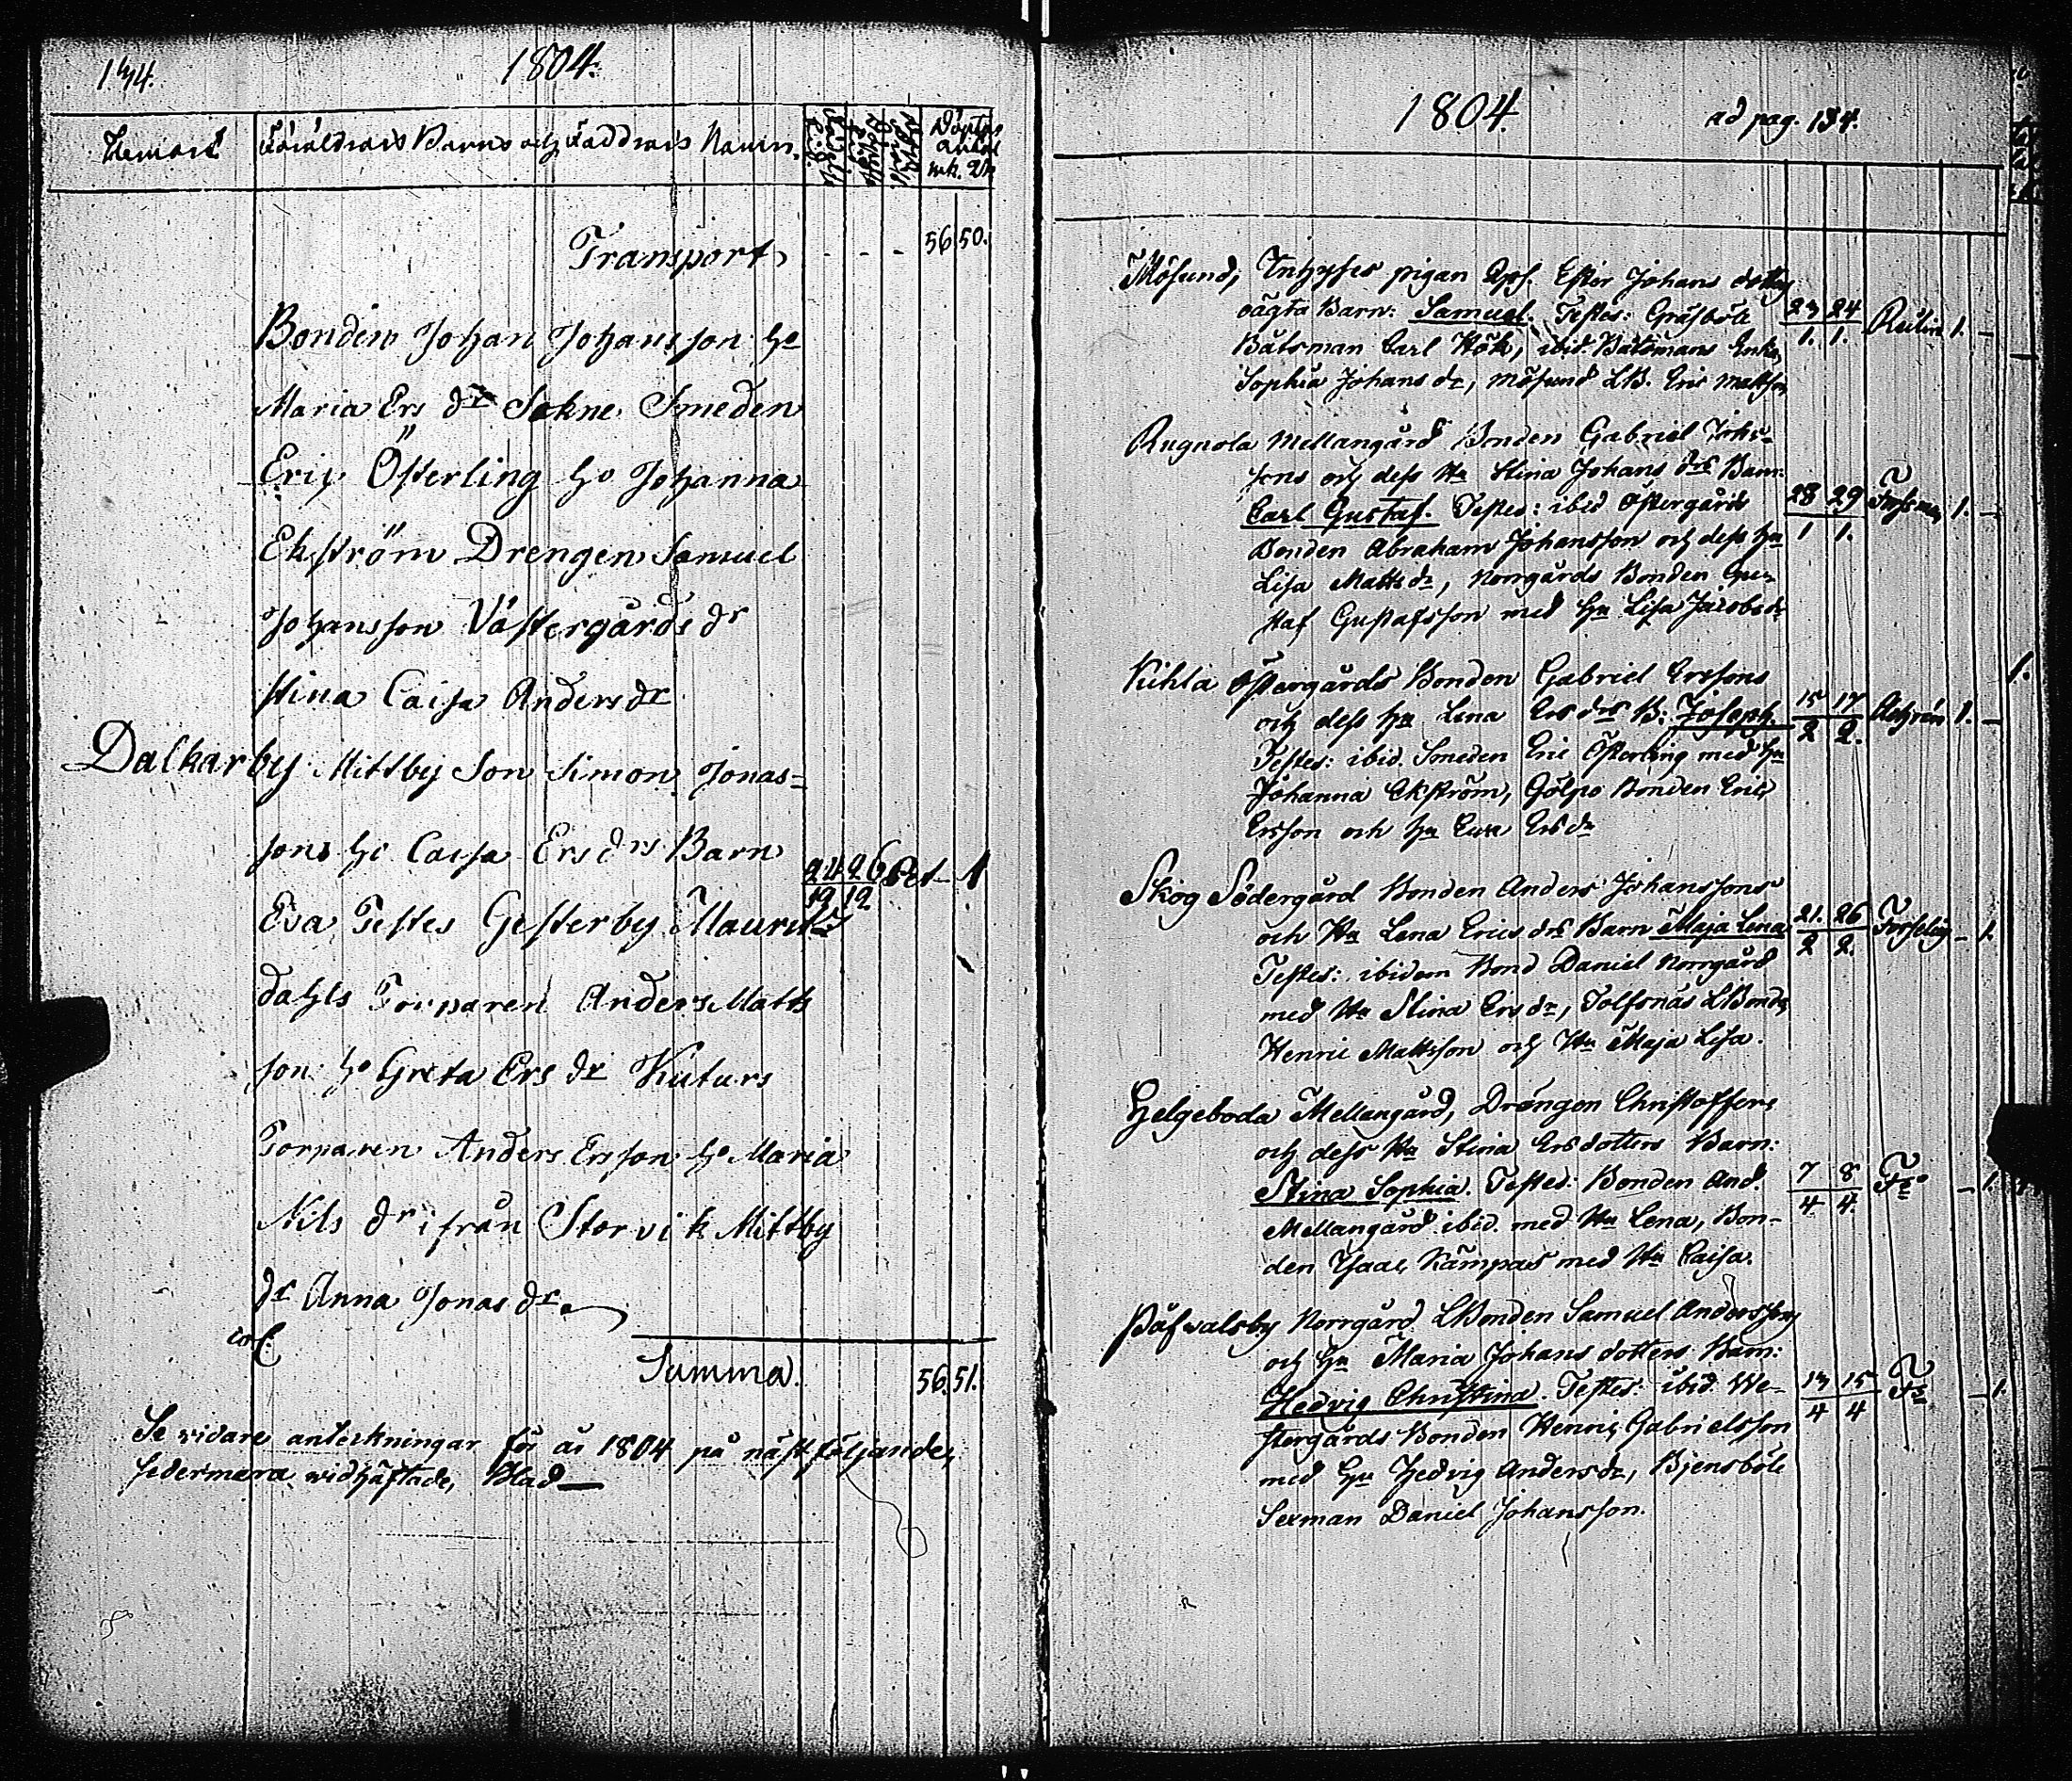 134.
1804.
Hemvist Föräldrars Barns och Faddrars Namn.
mk. Qk
Transport - - - 56 50.
Bonden Johan Johansson Ho
Maria Ers dr Sokne Smeden
Eric Österling Ho Johanna
Ekström Drengen Samuel
Johansson Västergårds dr
Stina Caisa Anders dr
Dalkarby Mittby Son Simon Jonas=
sons Ho Caisa Ers drs Barn 24 26 1
Eva Testes Gesterby Mauritz 12 12
dahls Torparen Anders Matts
son Ho Greta Ers dr
Torparen Anders Ersson Ho Maria
Nils dr ifrån Storvik Mittby
dr Anna Jonas dr
Summa. 56. 51.
Se vidare anteckningar för år 1804 på näst följande,
sedermera vidhäftade, Blad
1804. ad pag. 134.
Mösund, Inhyses pigan Ester Johans dotters
oägta Barn: Samuel. Testes: Gräsböle 23 24
Båtsman Carl Hök, ibid. Båtsmans Enka 1. 1. 1. -
Sophia Johans dr, Mösund LB. Eric Mattson
Rugnola Mellangård Bonden Gabriel Johs-
sons och dess Hu Stina Johans drs Barn:
Carl Gustaf. Testes: ibid Östergårds 28 29 1. -
Bonden Abraham Johansson och dess Hu 1 1.
Lisa Matts dr, Norrgårds Bonden Gus-
taf Gustafsson med Hu Lisa Jacobs dr
Kihla Östergårds Bonden Gabriel Erssons 1.
och dess Hu Lena Ers drs B: Joseph. 15 17 1. -
Testes: ibid. Smeden Eric Österling med Hu 2 2.
Johanna Ekström, Gölpo Bonden Eric
Ersson och Hu Ers dr
Skog Södergård Bonden Anders Johanssons
och Hu Lena Erics drs Barn Maja Lena 21. 26 - 1.
Testes: ibidem Bond Daniel Norrgård 2 2.
med Hu Stina Ers dr, Tolfsnäs LBonde
Henric Mattsson och Hu Maja Lisa.
Helgeboda Mellangård, Drängen Christoffers
och dess Hu Stina Ersdotters Barn:
Stina Sophia. Testes: Bonden And. 7 8 - 1.
Mellangård ibid. med Hu Lena, Bon- 4 4.
den Isaac Kämpars med Hu Caisa.
Påfvalsby Norrgård LBonden Samuel Anderssons
och Hu Maria Johans dotters Barn:
Hedvig Christina. Testes: ibid. We- 13 15 - 1.
stergårds Bonden Henric Gabrielsson 4 4
med Hu Hedvig Anders dr, Bjensböle
Sexman Daniel Johansson.